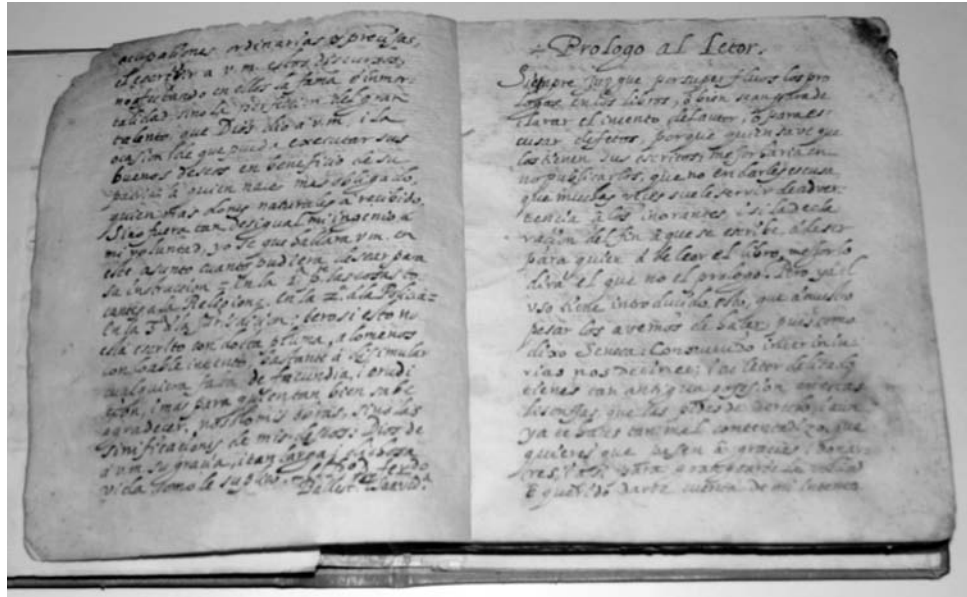 ocupaciones ordinarias o precisas,
el escrivir a v.m. estos discursos,
no fundando en ellos la fama o inmor
talidad sino la del gran
talento, que Dios dio a v.m. i la
ocasion de que pueda executar sus
buenos deseos en beneficio de su
patria a quien nace mas obligado,
quien mas dones naturales a recibido.
Si no fuera tan desigual mi ingenio a
mi voluntad, yo se que hallara v.m. en
este asunto cuanto pudiera desear para
su instrucion = En la 1ª pte las cosas to
cantes a la Religion, en la 2ª a la Policia =
En la 3ª a la Pero si esto no
esta escrito con docta pluma, a lo menos
con loable intento, bastante a disimular
cualquiera falta de facundia, i erudi
cion, i mas para quien tan bien sabe
agradecer, no solo mis obras, sino las
sinificaciones de mis deseos: Dios de
a v.m. su gracia, i tan larga, i
vida como le suplico.

✢ Prologo al Letor.
Siempre juzgue por superfluos los pro
logos en los libros, o bien sean para de
clarar el intento del autor, o para es
cusar defetos, porque quien save que
los tienen sus escritos, mejor haria en
no publicarlos, que no en darles escusa
que muchas veces suele servir de adver
tencia a los inorantes, i si la decla
racion del fin a que se escribe, a de ser
para quien a de leer el libro, mejor lo
dira el que no el prologo. Pero ya el
uso tiene introducido esto, que a nuestro
pesar los avemos de hazer, pues como
dixo Seneca:
letor delicado
tienes tan antigua posesion en estas
disensas, que las pides de
ya te hazes tan mal contentadizo, que
quieres que pasen a gracias, i donay
res, para
E querido darte cuenta de mi intento